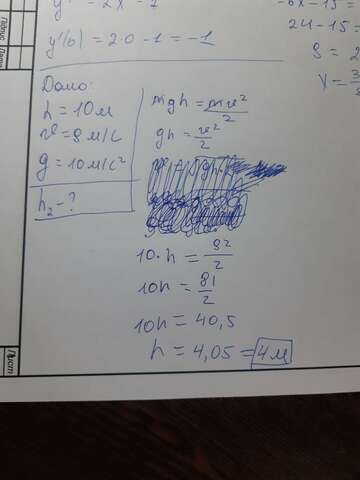 y' = 2x - 7
y'(0) = 2·0 - 1 = -1
-6x - 15 =
24 - 15 =
Дано:
h = 10 м
v = 9 м/с
g = 10 м/с²
h₂ - ?
mgh = mv²/2
gh = v²/2
10·h = 9²/2
10h = 81/2
10h = 40,5
h = 4,05 = 4 м
Лист